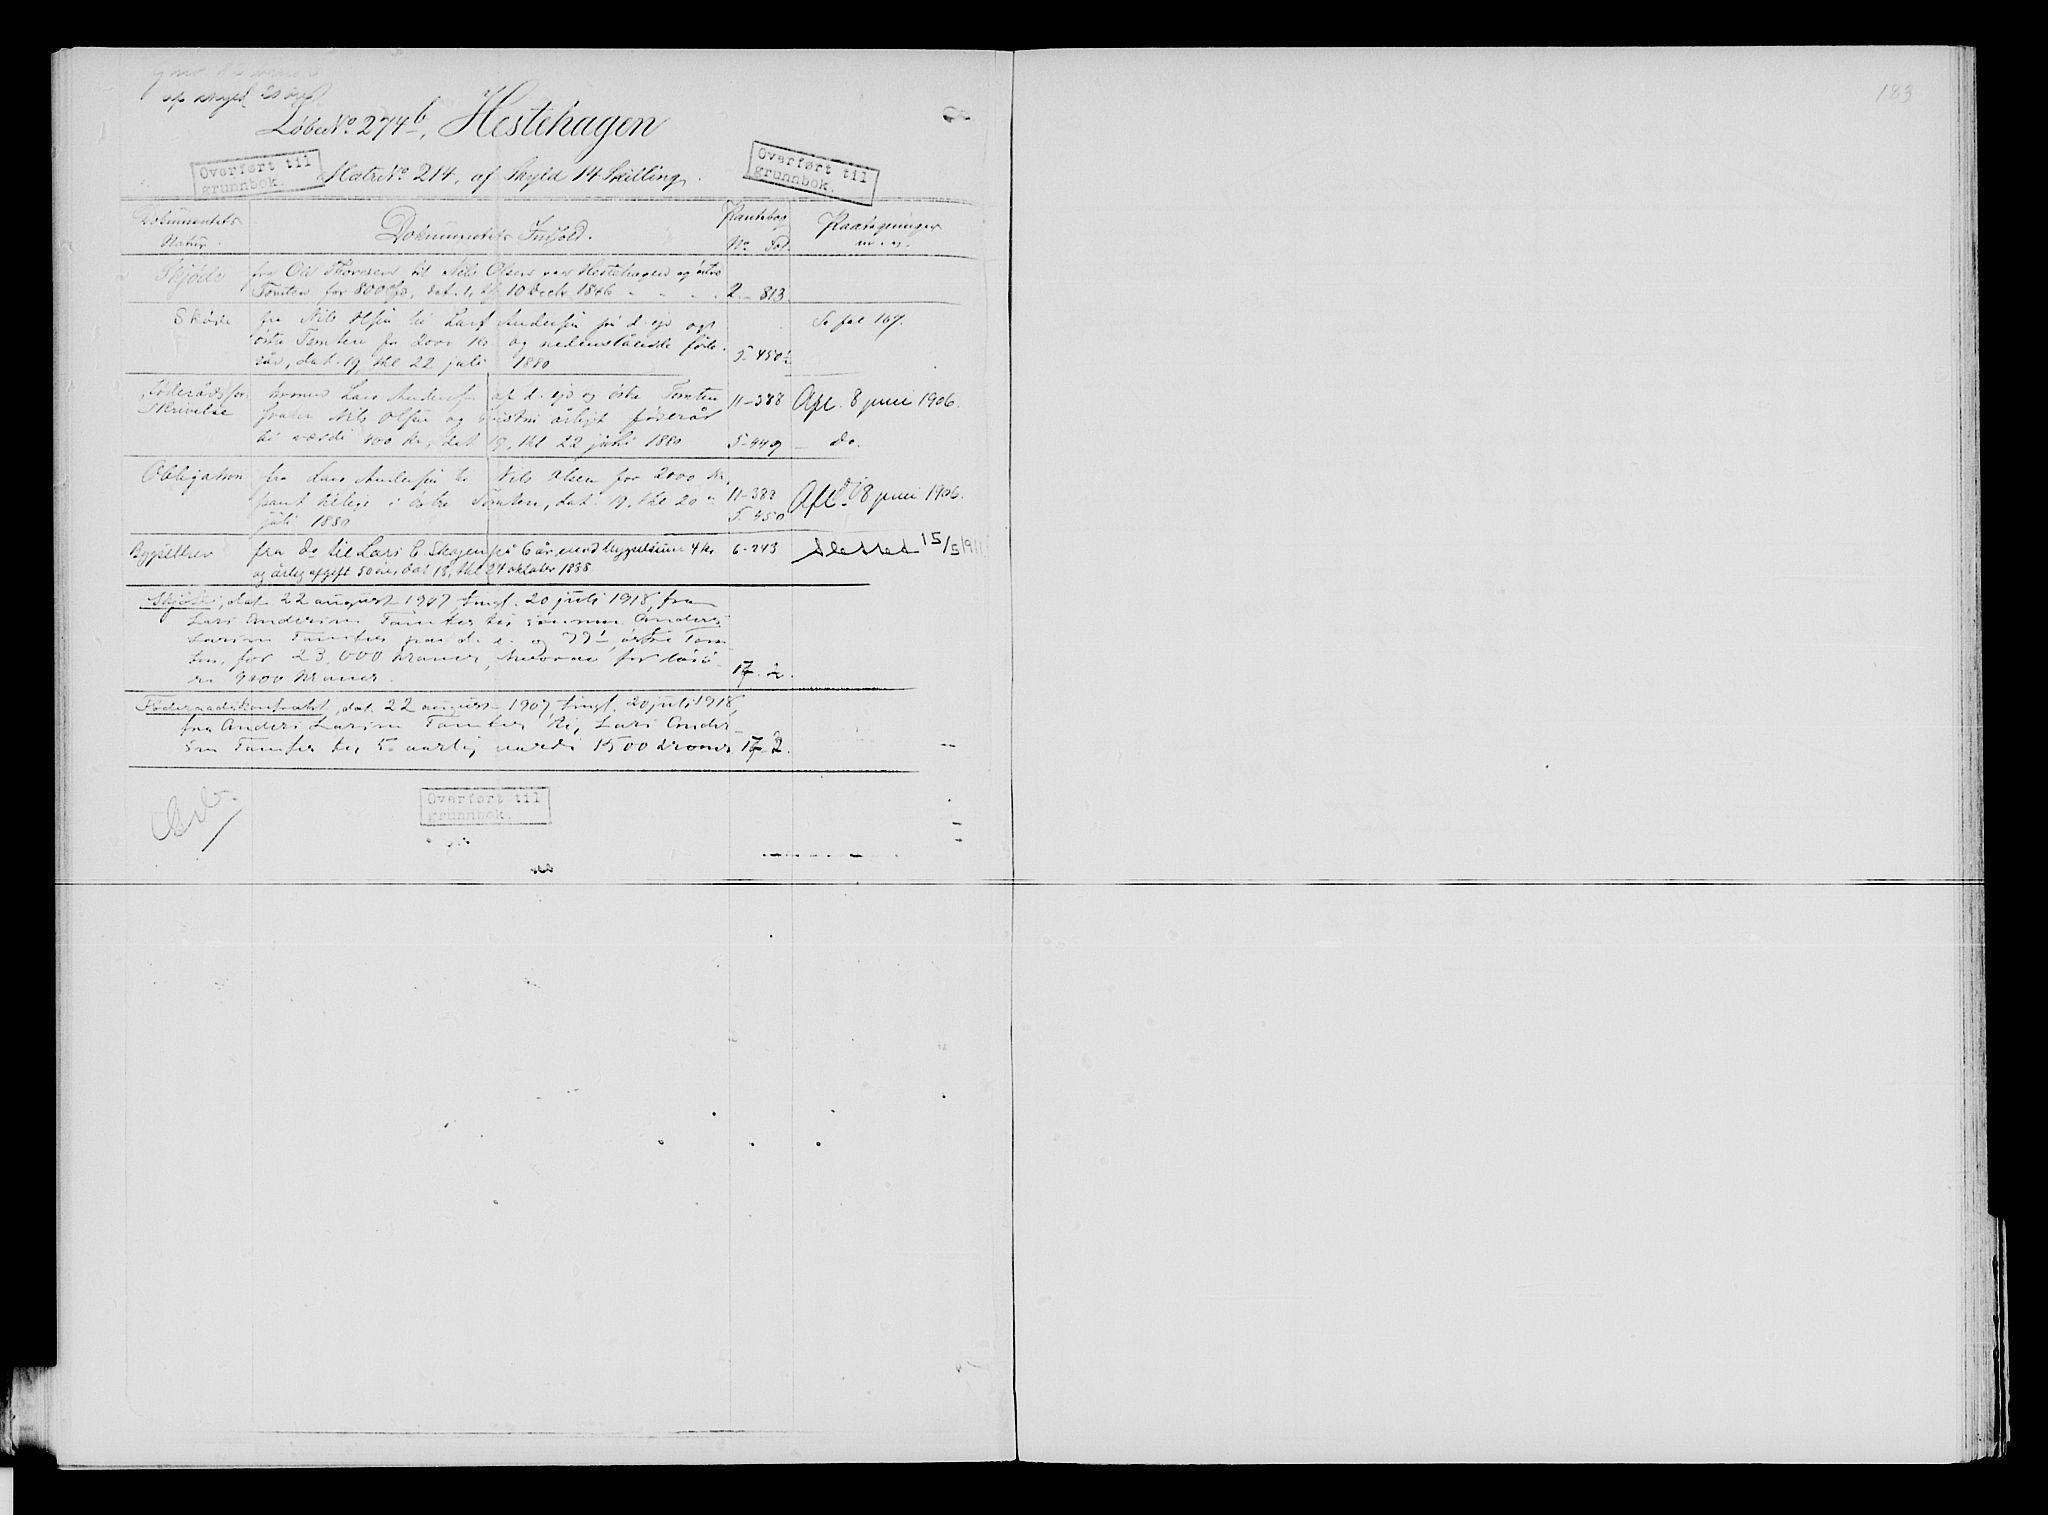 af skyld
183
LøbeNo 274b, Hestehagen
Overført til
grunnbok.
MatrNo 214, af Skyld 14 Skilling.
Overført til
grunnbok.
Dokumentets Natur.
Dokumentets Indhold.
Pantebog
No Fol.
Paategninger m. v.
Skjøde
fra Ole Thoresen til Nils Olsen paa Hestehagen og østre
Tomten for 800 Spd, dat. 1, 10 Decbr 1846
2 - 813
Skøde
fra Nils Olsen til Lars Andersen på d. ejd og
østre Tomten for 2000 Kr. og nedenstående føde-
råd, dat. 19, thl 22 juli 1880
5 - 450
Se fol 167.
Føderådsfor-
skrivelse
hvorved Lars Andersen af d. ejd og østre Tomten
Nils Olsen og årligt føderåd
til værdi 400 kr, dat 19, thl 22 juli 1880
11-388
5-449
Afl. 8 juni 1906.
— do.
Obligation
fra Lars Andersen til Nils Olsen for 2000 Kr.
pant tillige i østre Tomten, dat. 19, thl 20
juli 1880
11-388
5-450
Afl. d 8 juni 1906.
Bygselbrev
fra do til Lars E. Skogen på 6 år, mod bygselsum 4 kr.
og årlig afgift 50 øre, dat 18, thl 24 oktober 1888
6-243
Slettet 15/5 1911
Skjøte, dat 22 august 1907, tingl. 20 juli 1918, fra
Lars Andersen Tomter til sønnen Anders
Larsen Tomter paa d. e. og 77/1 østre Tom-
ten, for 23,000 kroner, hvorav for løsø-
re 9000 kroner.
17-2.
Føderaadskontrakt, dat. 22 august 1907, tingl. 20 juli 1918,
fra Anders Larsen Tomter til Lars Ander-
sen Tomter til 5 aarlig værdi 1500 kroner
17-2.
Overført til
grunnbok.